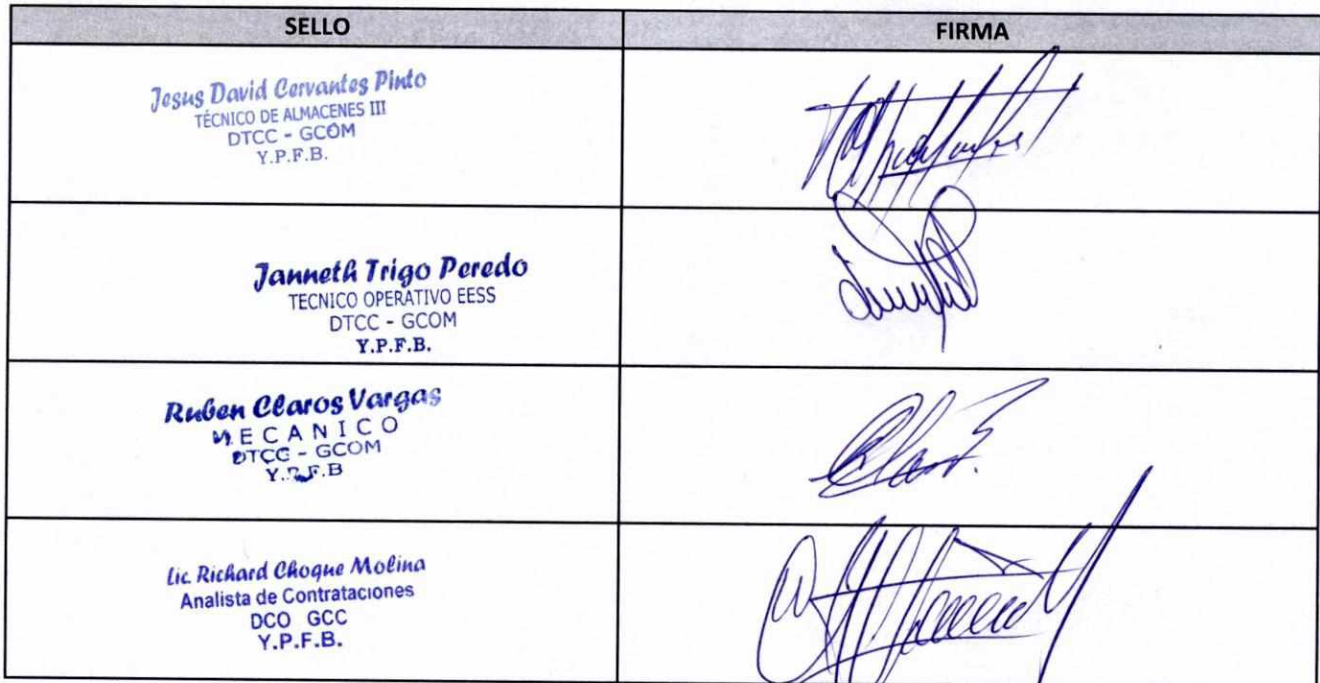 SELLO
FIRMA
Jesus David Cervantes Pinto
TÉCNICO DE ALMACENES III
DTCC - GCOM
Y.P.F.B.
Janneth Trigo Peredo
TECNICO OPERATIVO EESS
DTCC - GCOM
Y.P.F.B.
Ruben Claros Vargas
MECANICO
DTCC - GCOM
Y.P.F.B
Lic. Richard Choque Molina
Analista de Contrataciones
DCO GCC
Y.P.F.B.